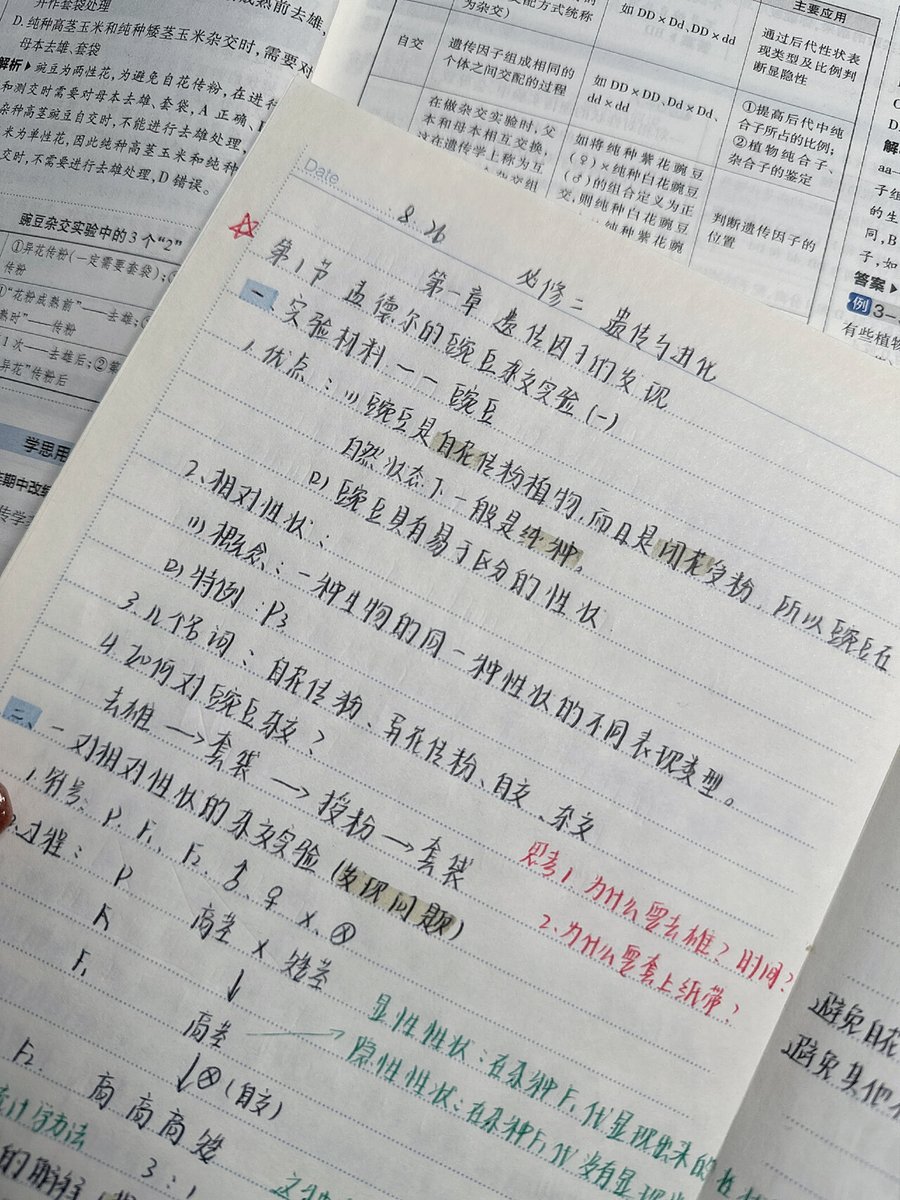 并作套袋处理
D. 纯种高茎玉米和纯种矮茎玉米杂交时,需要对
母本去雄、套袋
解析▶豌豆为两性花,为避免自花传粉,在进行
和测交时需要对母本去雄、套袋,A 正确、
杂种高茎豌豆自交时,不能进行去雄处理,
米为单性花,因此纯种高茎玉米和纯种
交时,不需要进行去雄处理,D 错误。
豌豆杂交实验中的3个“2”
①异花传粉(一定需要套袋);
传粉
①“花粉成熟前”——去雄;
熟时”——传粉
1次——去雄后;②第
异花”传粉后
学思用
传学
为杂交)
如 DD×Dd、DD×dd
主要应用
通过后代性状表
现类型及比例判
断显隐性
自交
遗传因子组成相同的
个体之间交配的过程
如 DD×DD、Dd×Dd、
dd×dd
①提高后代中纯
合子所占的比例;
②植物纯合子、
杂合子的鉴定
在做杂交实验时,父
本和母本相互交换,
这在遗传学上称为互
如将纯种紫花豌豆
(♀)×纯种白花豌豆
(♂)的组合定义为正
交,则纯种白花豌
纯种紫花豌
判断遗传因子的
位置
aa—
子组
的生
同,B
子,如
答案▶
例3-
有些植物
Date
8.26
必修二 遗传与进化
第一章 遗传因子的发现
第1节 孟德尔的豌豆杂交实验(一)
一、实验材料——豌豆
1.优点:(1)豌豆是自花传粉植物,而且是闭花受粉,所以豌豆在
自然状态下一般是纯种。
(2)豌豆具有易于区分的性状
2.相对性状:
(1)概念:一种生物的同一种性状的不同表现类型。
(2)特例:P3
3.几个名词:自花传粉、异花传粉、自交、杂交
4.如何对豌豆杂交?
去雄→套袋→授粉→套袋
思考1.为什么要去雄?时间?
2.为什么要套上纸带?
二、一对相对性状的杂交实验(发现问题)
1.符号:P. F1. F2. ♂. ♀ × ⊗
2.过程:
P 高茎 × 矮茎
F1
↓
F1 高茎 → 显性性状:在杂种F1代显现出来的性
隐性性状:在杂种F1代没有显现
↓⊗(自交)
F2 高 高 高 矮
3 : 1
计与方法
避免自花
避免其他